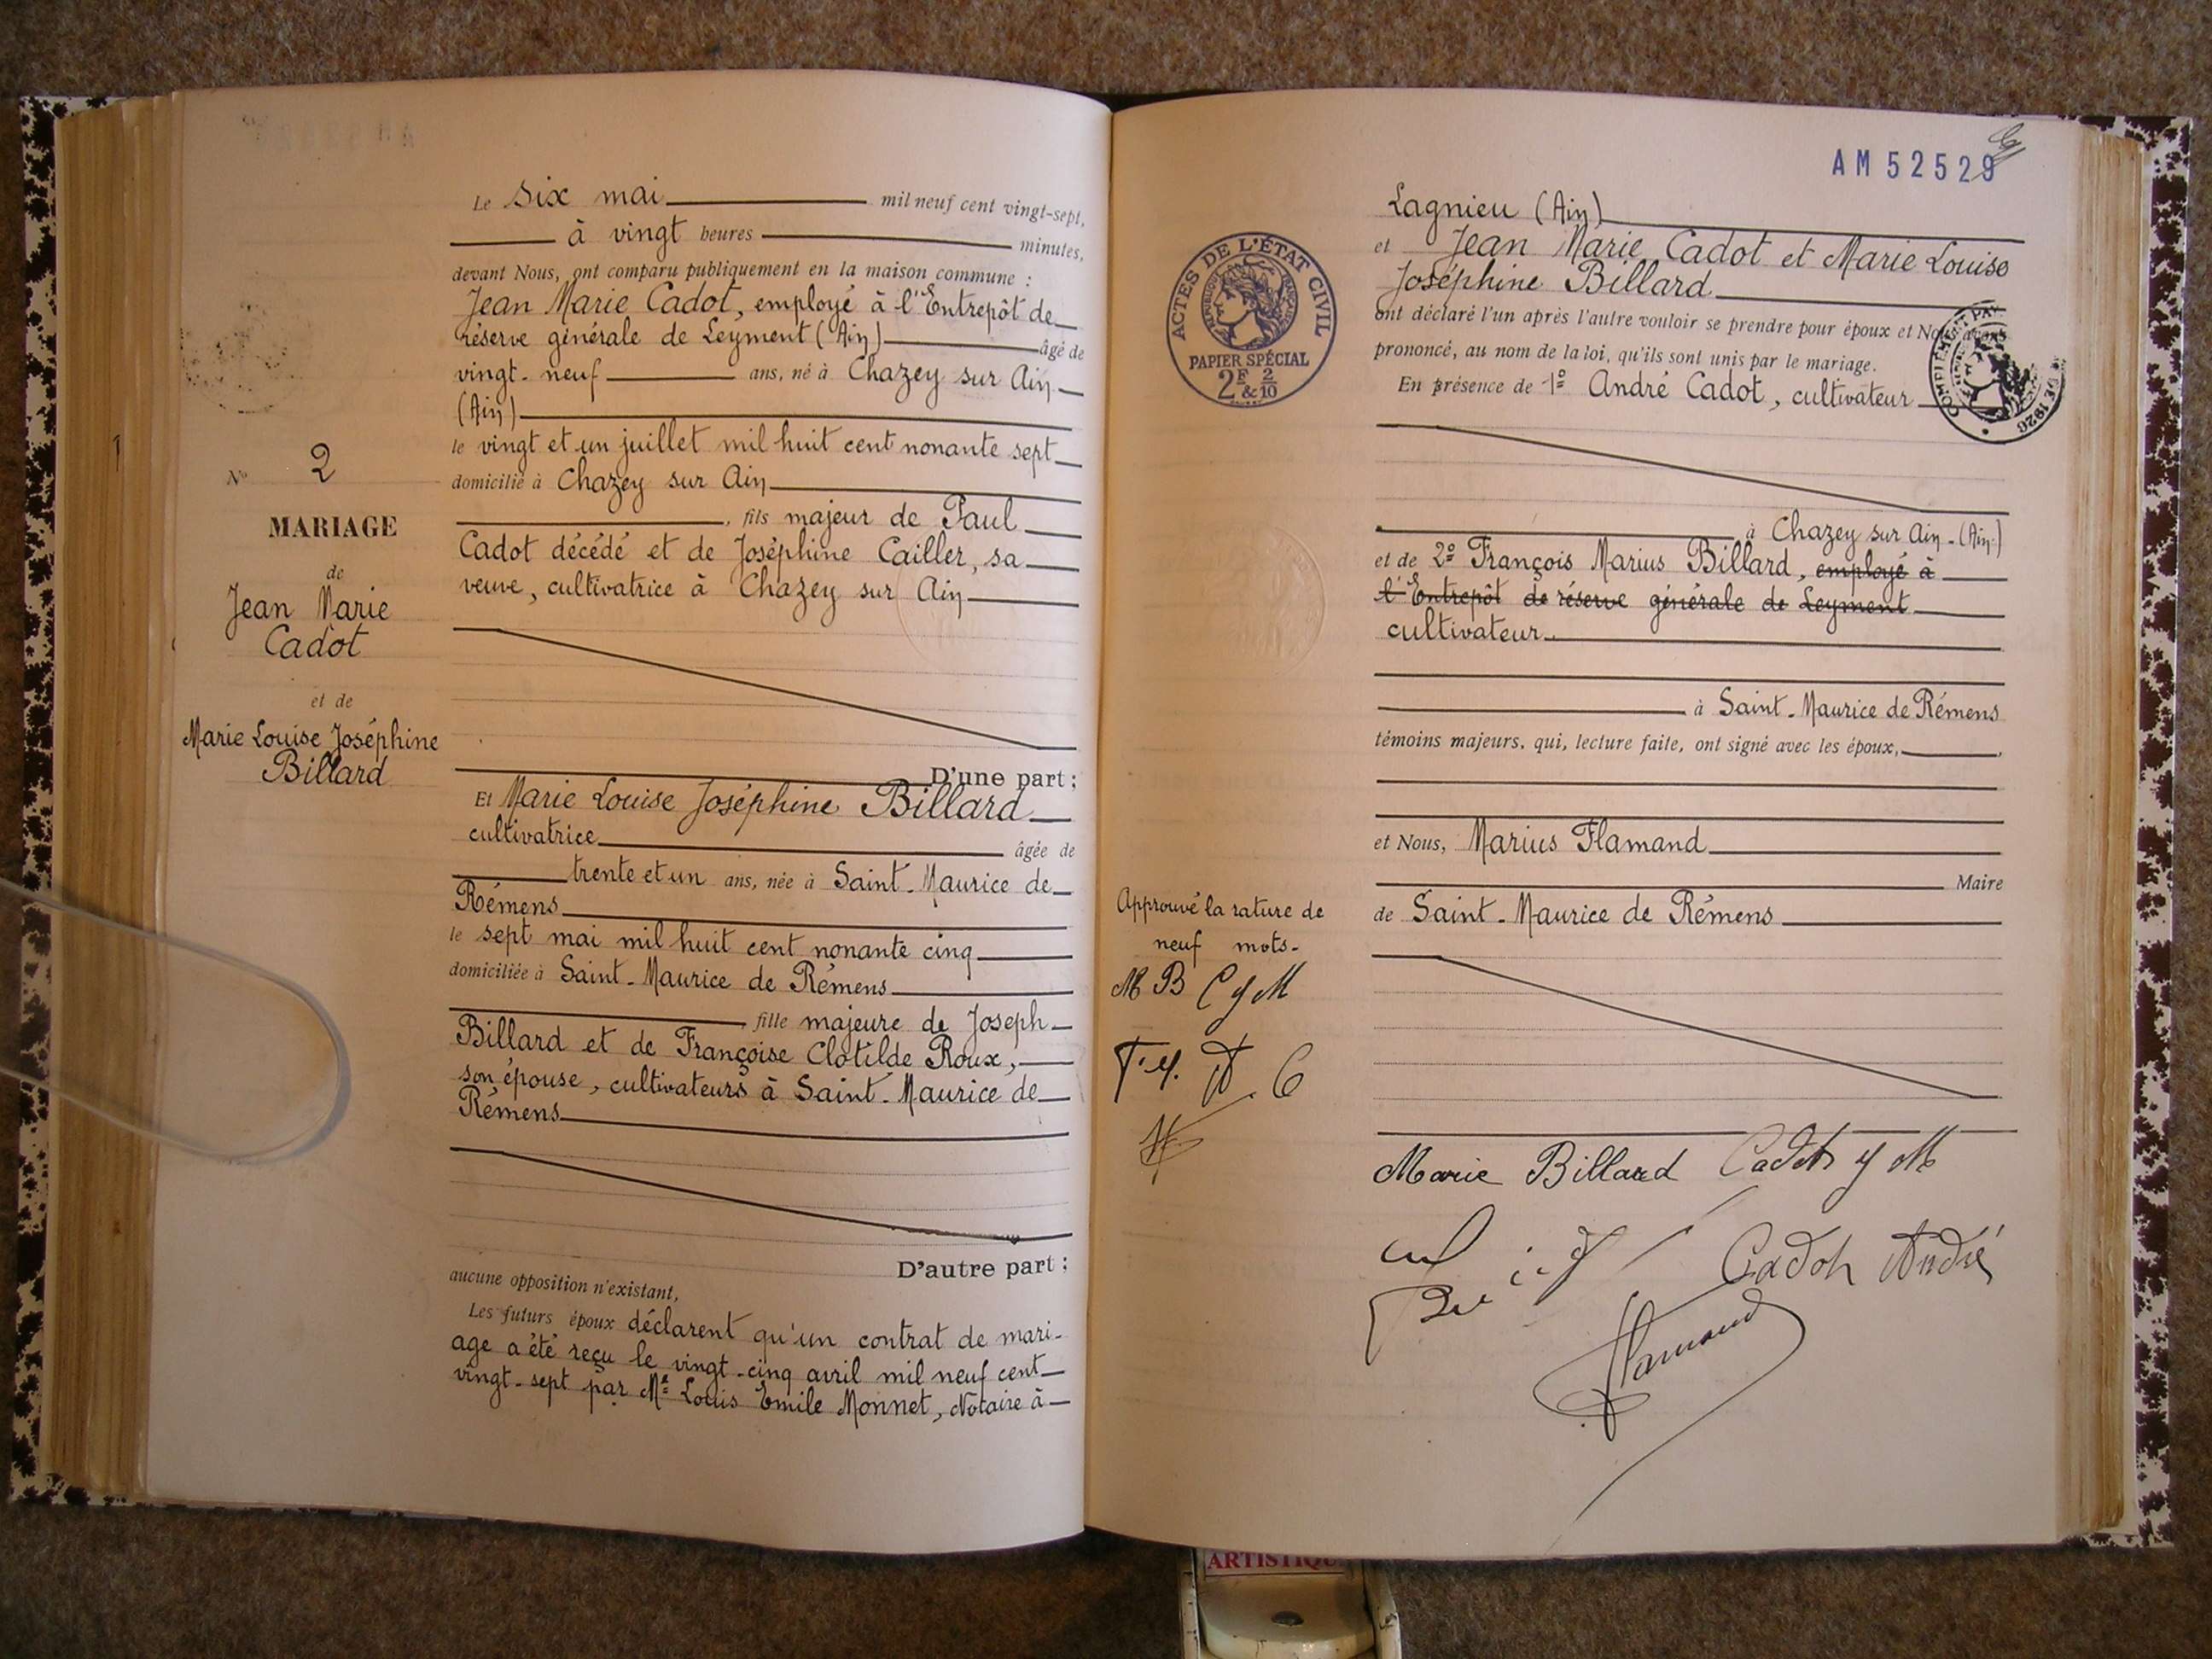 Le six mai mil neuf cent vingt-sept,
à vingt heures minutes,
devant Nous, ont comparu publiquement en la maison commune :
Jean Marie Cadot, employé à l'Entrepôt de
réserve générale de Leyment (Ain) âgé de
vingt-neuf ans, né à Chazey sur Ain
(Ain)
le vingt et un juillet mil huit cent nonante sept
domicilié à Chazey sur Ain
, fils majeur de Paul
Cadot décédé et de Joséphine Cailler, sa
veuve, cultivatrice à Chazey sur Ain
D'une part ;
Et Marie Louise Joséphine Billard
cultivatrice âgée de
trente et un ans, née à Saint-Maurice de
Rémens
le sept mai mil huit cent nonante cinq
domiciliée à Saint-Maurice de Rémens
fille majeure de Joseph
Billard et de Françoise Clotilde Roux,
son épouse, cultivateurs à Saint-Maurice de
Rémens
D'autre part ;
aucune opposition n'existant,
Les futurs époux déclarent qu'un contrat de mari-
age a été reçu le vingt-cinq avril mil neuf cent
vingt-sept par Me Louis Emile Monnet, Notaire à
No 2
MARIAGE
de
Jean Marie
Cadot
et de
Marie Louise Joséphine
Billard
AM 52529
Lagnieu (Ain)
et Jean Marie Cadot et Marie Louise
Joséphine Billard
ont déclaré l'un après l'autre vouloir se prendre pour époux et Nous avons
prononcé, au nom de la loi, qu'ils sont unis par le mariage.
En présence de 1º André Cadot, cultivateur
à Chazey sur Ain-(Ain)
et de 2º François Marius Billard, employé à
l'Entrepôt de réserve générale de Leyment
cultivateur
à Saint-Maurice de Rémens
témoins majeurs, qui, lecture faite, ont signé avec les époux,
et Nous, Marius Flamand
Maire
de Saint-Maurice de Rémens
Marie Billard Cadot J M
Cadot André
Flamand
ACTES DE L'ÉTAT CIVIL
RÉPUBLIQUE FRANÇAISE
PAPIER SPÉCIAL
2F & 2/10
DE 1926
Approuvé la rature de
neuf mots-
M B C J M
ARTISTIQU